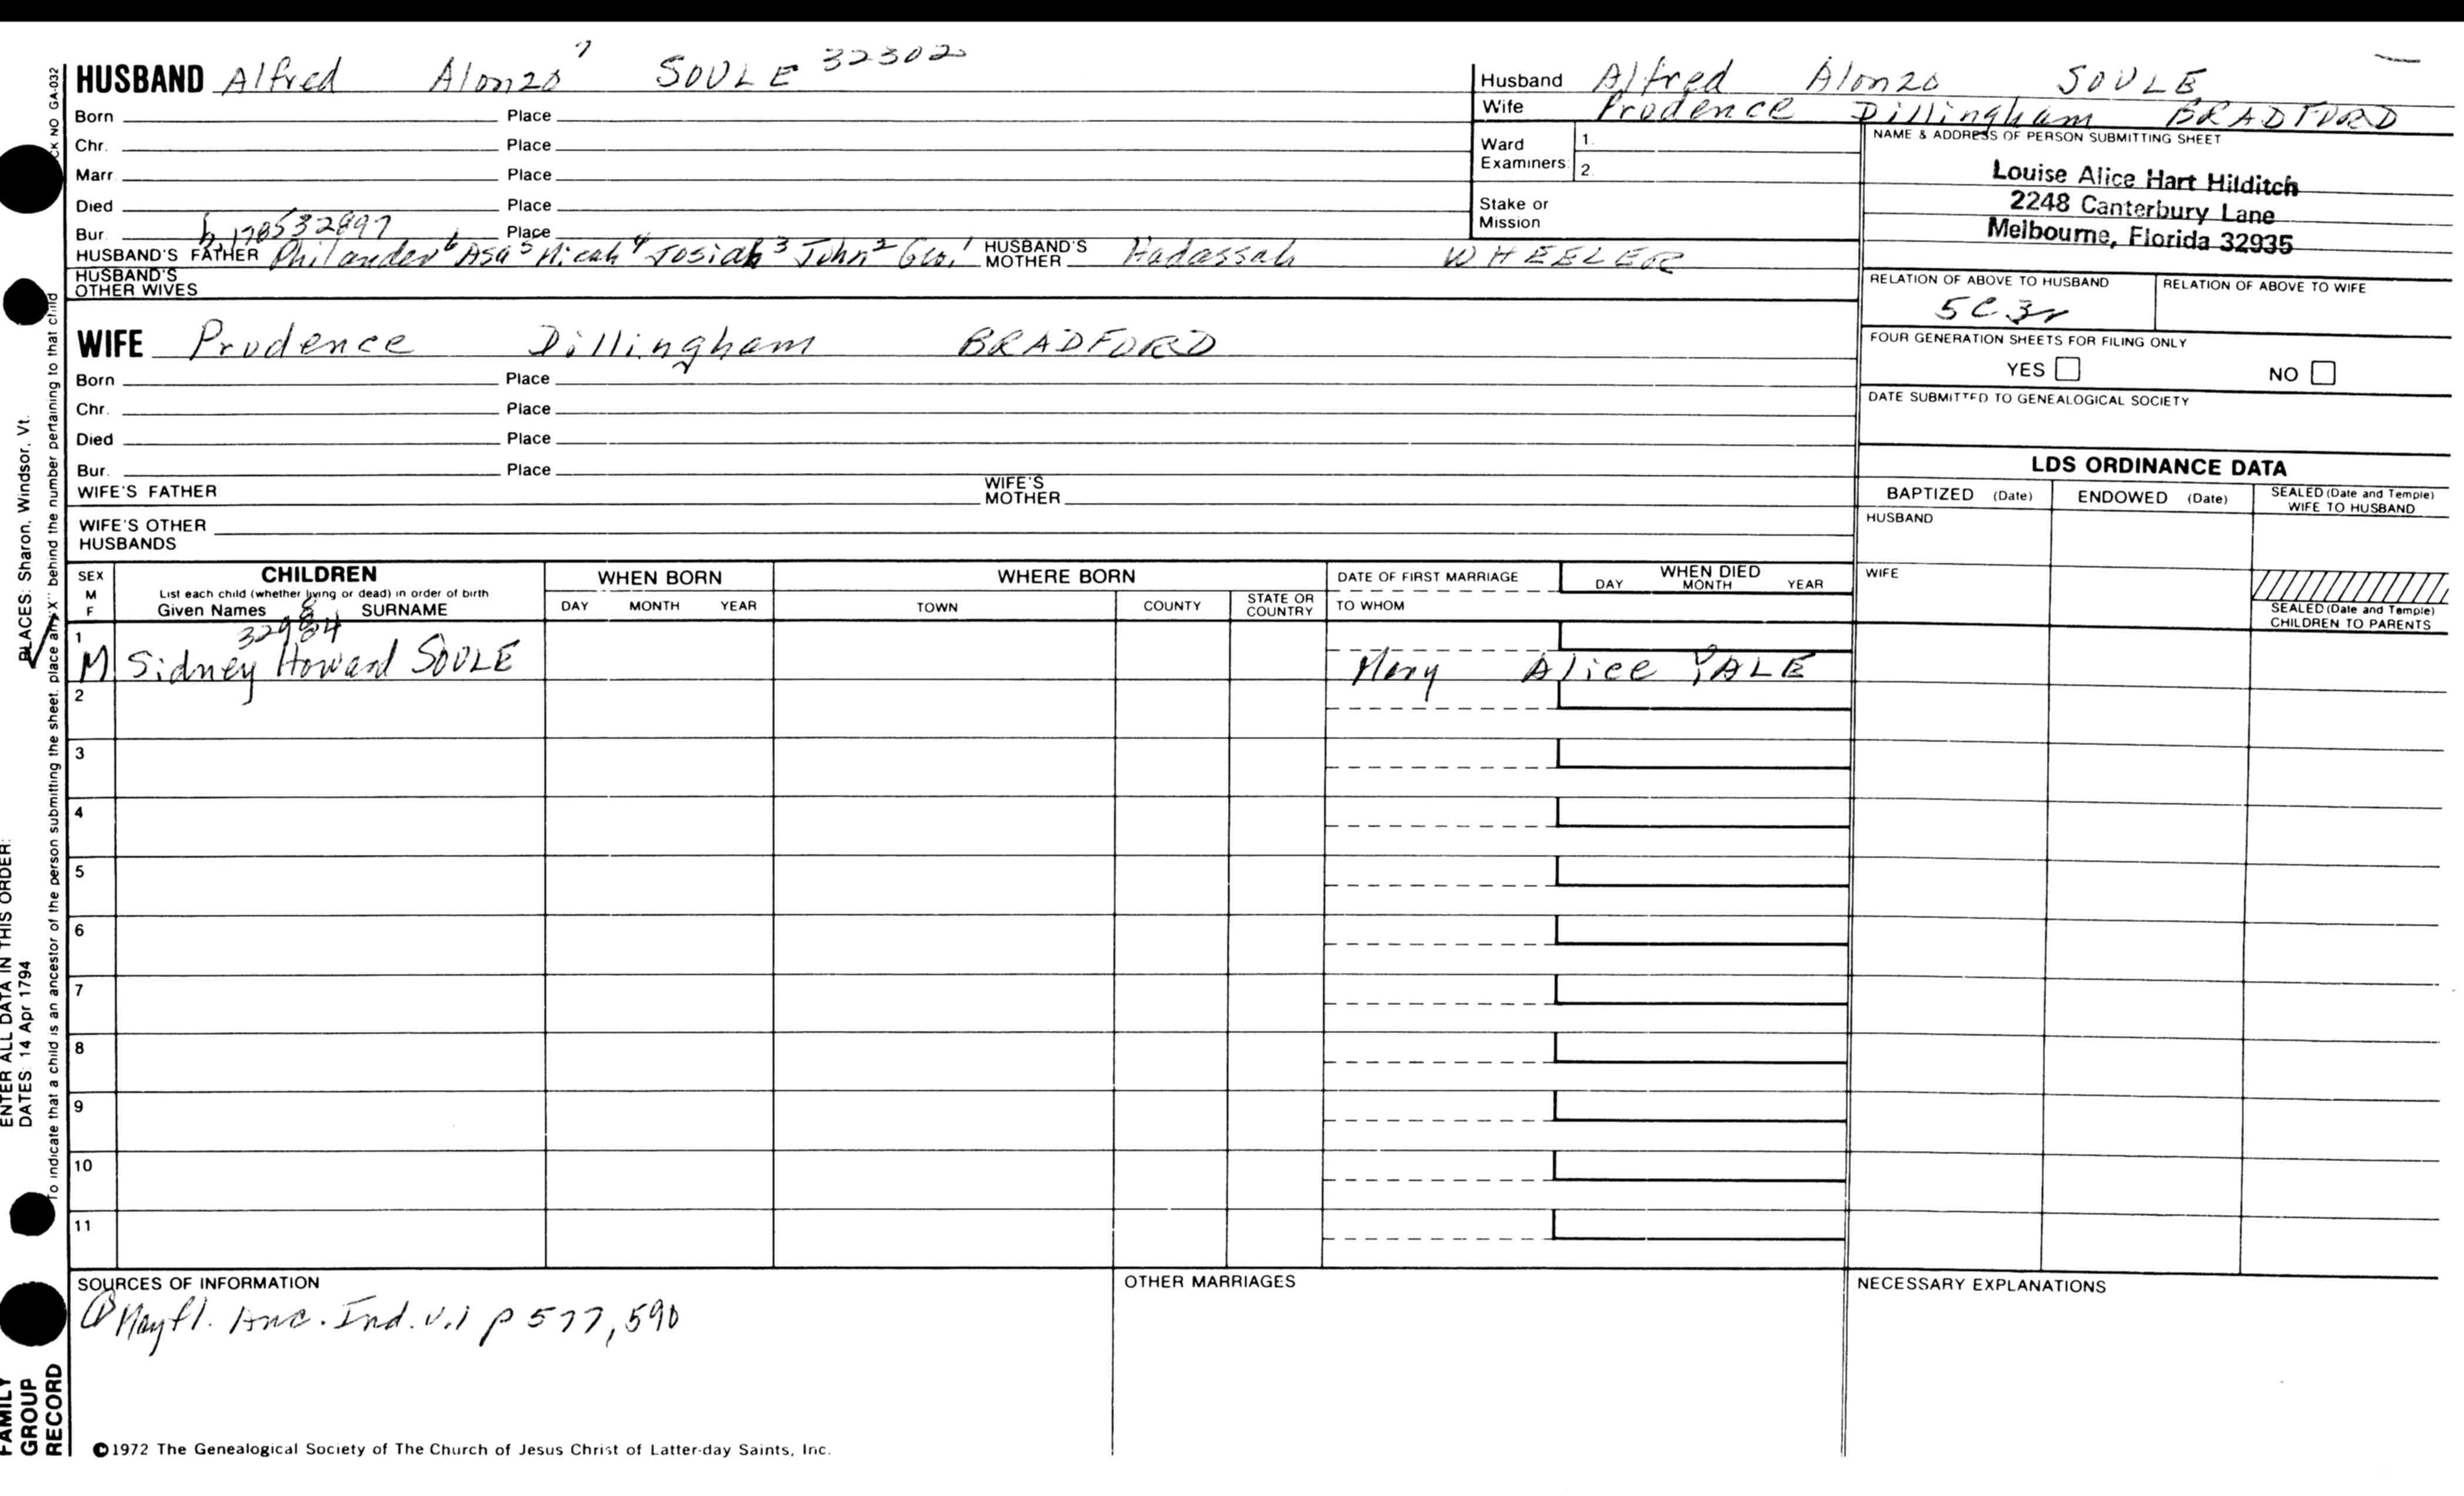 HUSBAND Alfred Alonzo 7 SOULE 32302
Born Place
Chr. Place
Marr. Place
Died Place
Bur. Place
HUSBAND'S FATHER Philander 6 Asa 5 Micah 4 Josiah 3 John 2 Geo. 1 HUSBAND'S MOTHER Hadassah WHEELER
HUSBAND'S OTHER WIVES
Husband Alfred Alonzo SOULE
Wife Prudence Dillingham BRADFORD
Ward Examiners 1.
2.
Stake or Mission
NAME & ADDRESS OF PERSON SUBMITTING SHEET
Louise Alice Hart Hilditch
2248 Canterbury Lane
Melbourne, Florida 32935
RELATION OF ABOVE TO HUSBAND RELATION OF ABOVE TO WIFE
5C3r
FOUR GENERATION SHEETS FOR FILING ONLY
YES NO
DATE SUBMITTED TO GENEALOGICAL SOCIETY
WIFE Prudence Dillingham BRADFORD
Born Place
Chr. Place
Died Place
Bur. Place
WIFE'S FATHER WIFE'S MOTHER
WIFE'S OTHER HUSBANDS
LDS ORDINANCE DATA
BAPTIZED (Date) ENDOWED (Date) SEALED (Date and Temple) WIFE TO HUSBAND
HUSBAND
WIFE
SEALED (Date and Temple) CHILDREN TO PARENTS
SEX M F CHILDREN WHEN BORN WHERE BORN DATE OF FIRST MARRIAGE WHEN DIED
List each child (whether living or dead) in order of birth
Given Names SURNAME DAY MONTH YEAR TOWN COUNTY STATE OR COUNTRY TO WHOM DAY MONTH YEAR
1 M Sidney Howard SOULE Mary Alice YALE
2
3
4
5
6
7
8
9
10
11
SOURCES OF INFORMATION OTHER MARRIAGES NECESSARY EXPLANATIONS
Mayfl. Anc. Ind. v.1 p 577, 590
©1972 The Genealogical Society of The Church of Jesus Christ of Latter-day Saints, Inc.
CK NO GA-032
To indicate that a child is an ancestor of the person submitting the sheet, place an "X" behind the number pertaining to that child
ENTER ALL DATA IN THIS ORDER:
DATES: 14 Apr 1794 PLACES: Sharon, Windsor, Vt.
FAMILY GROUP RECORD